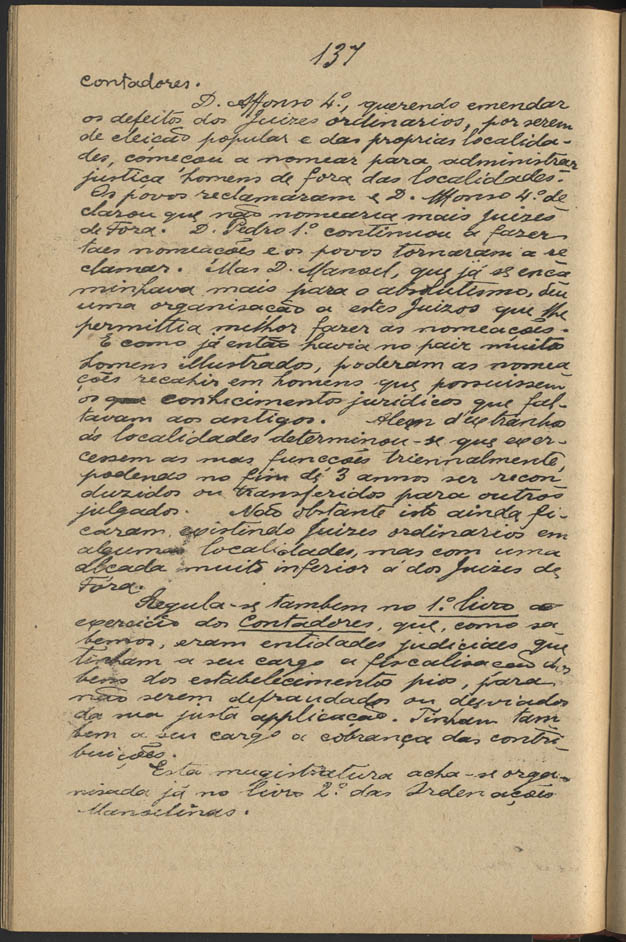 137
contadores.
D. Affonso 4.º, querendo emendar
os defeitos dos juizes ordinarios, por serem
de eleição popular e das proprias localida-
des, começou a nomear para administrar
justiça homens de fora das localidades.
Os povos reclamaram e D. Affonso 4.º de
clarou que não nomearia mais juizes
de Fora. D. Pedro 1.º continuou a fazer
taes nomeações e os povos tornaram a re
clamar. Mas D. Manoel, que já se enca
minhava mais para o absolutismo, deu
uma organisação a estes Juizos que lhe
permittia melhor fazer as nomeações.
E como já então havia no paiz muitos
homens illustrados, poderam as nomea
ções recahir em homens que possuissem
os conhecimentos juridicos que fal-
tavam aos antigos. Alem d'extranhos
ás localidades determinou-se que exer-
cessem as suas funcções triennalmente,
podendo no fim de 3 annos ser recon
duzidos ou transferidos para outros
julgados. Não obstante isto ainda fi-
caram existindo Juizes ordinarios em
algumas localidades, mas com uma
alçada muito inferior á dos Juizes de
Fóra.
Regula-se tambem no 1.º livro o
exercicio dos Contadores, que, como sa
bemos, eram entidades judiciaes que
tinham a seu cargo a fiscalisação dos
bens dos estabelecimentos pios, para
não serem defraudados ou desviados
da sua justa applicação. Tinham tam
bem a seu cargo a cobrança das contri-
buições.
Esta magistratura acha-se orga-
nisada já no livro 2.º das Ordenações
Manoelinas.